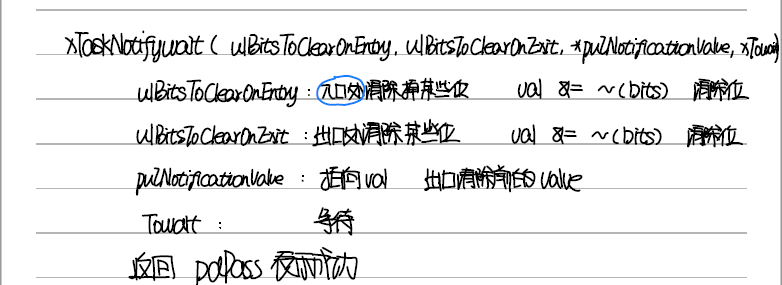 xTaskNotifywait ( ulBitsToClearOnEntry, ulBitsToClearOnExit, *pulNotificationValue, xTowait)
ulBitsToClearOnEntry : 入口处清除掉某些位 val &= ~(bits) 清除位
ulBitsToClearOnExit : 出口处清除某些位 val &= ~(bits) 清除位
pulNotificationValue : 指向val 出口清除前的value
Towait : 等待
返回 pdPass 表示成功